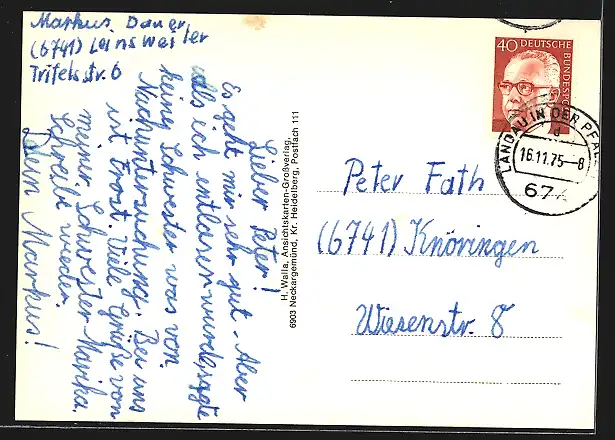 Markus Dauer
(6741) Leinsweiler
Trifelsstr. 6
Lieber Peter!
Es geht mir sehr gut. Aber
als ich entlasen wurde sagte
keine Schwester was von
Nachuntersuchung. Bei uns
ist Frost. Viele Grüße von
meiner Schwester Marika.
Schreibe wieder.
Dein Markus!
H. Walla, Ansichtskarten-Großverlag,
6903 Neckargemünd, Kr. Heidelberg, Postfach 111
40 DEUTSCHE
BUNDESPO
LANDAU IN DER PFAL
d
16.11.75-8
674
Peter Fath
(6741) Knöringen
Wiesenstr. 8